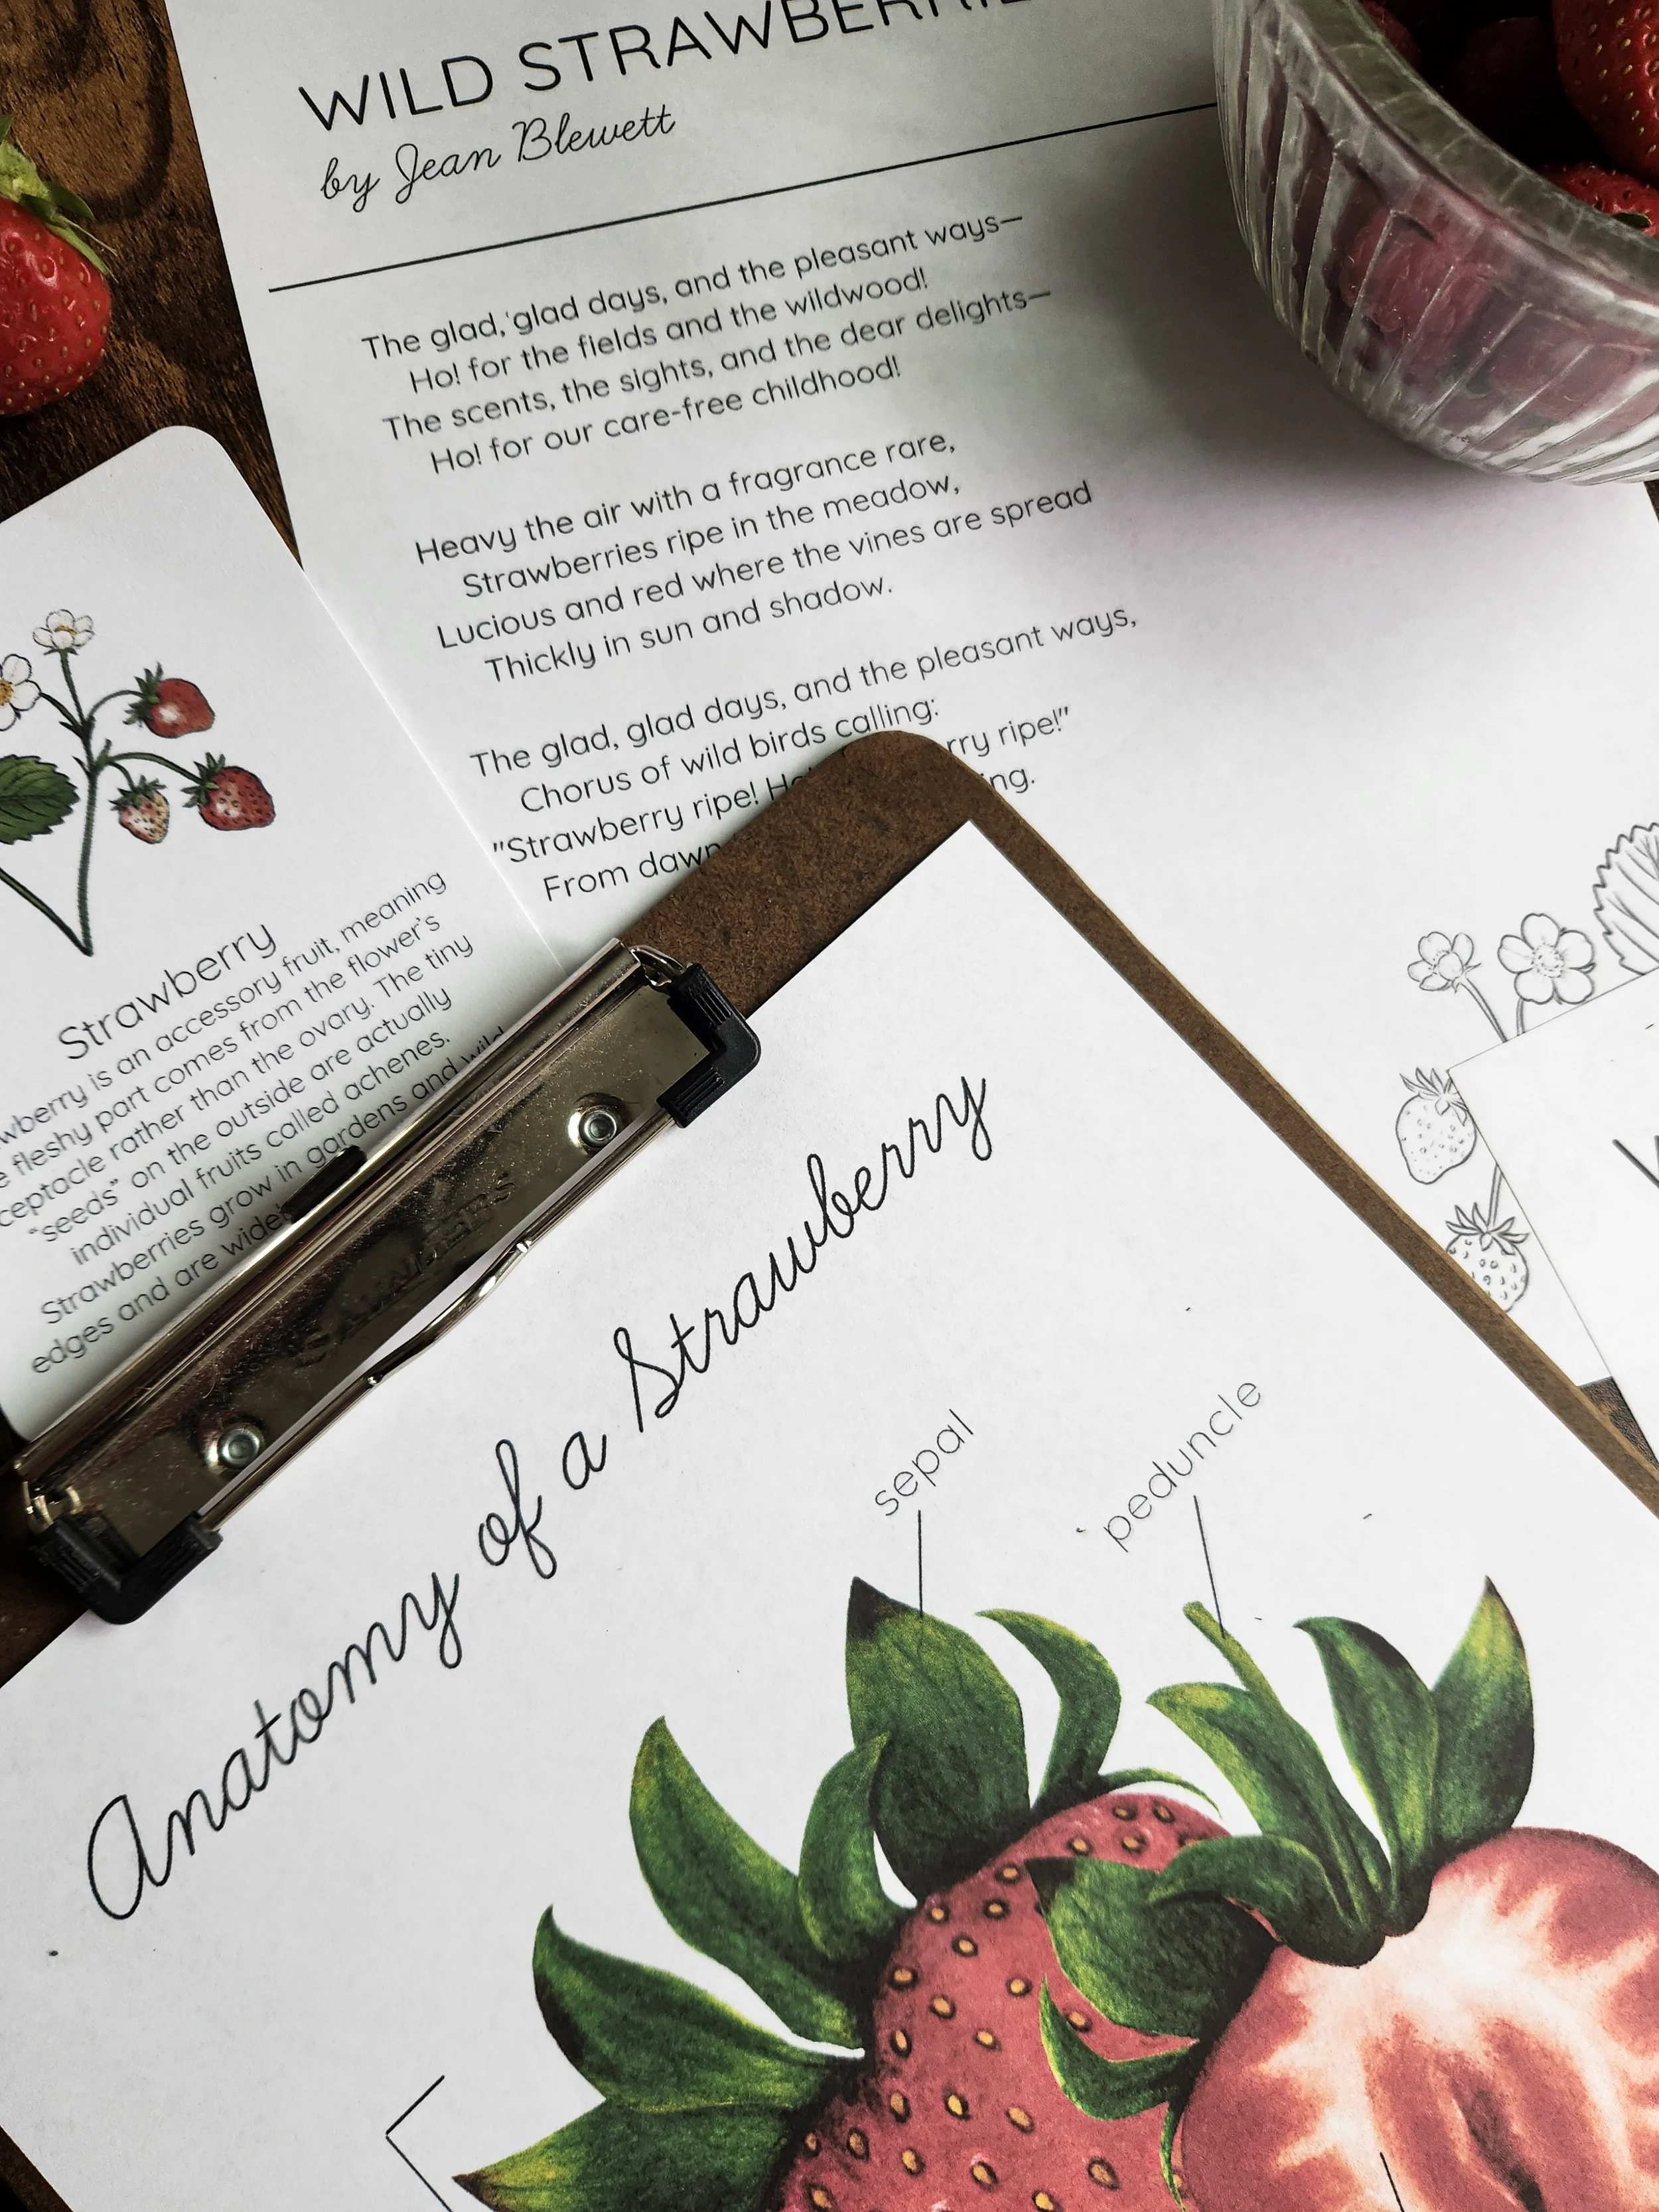 WILD STRAWBERRIE
by Jean Blewett
The glad, glad days, and the pleasant ways—
Ho! for the fields and the wildwood!
The scents, the sights, and the dear delights—
Ho! for our care-free childhood!
Heavy the air with a fragrance rare,
Strawberries ripe in the meadow,
Lucious and red where the vines are spread
Thickly in sun and shadow.
The glad, glad days, and the pleasant ways,
Chorus of wild birds calling:
"Strawberry ripe! Ho rry ripe!"
From dawn ing.
Strawberry
wberry is an accessory fruit, meaning
e fleshy part comes from the flower's
ceptacle rather than the ovary. The tiny
"seeds" on the outside are actually
individual fruits called achenes.
Strawberries grow in gardens and wild
edges and are widel
SAUNDERS
Anatomy of a Strawberry
sepal
peduncle